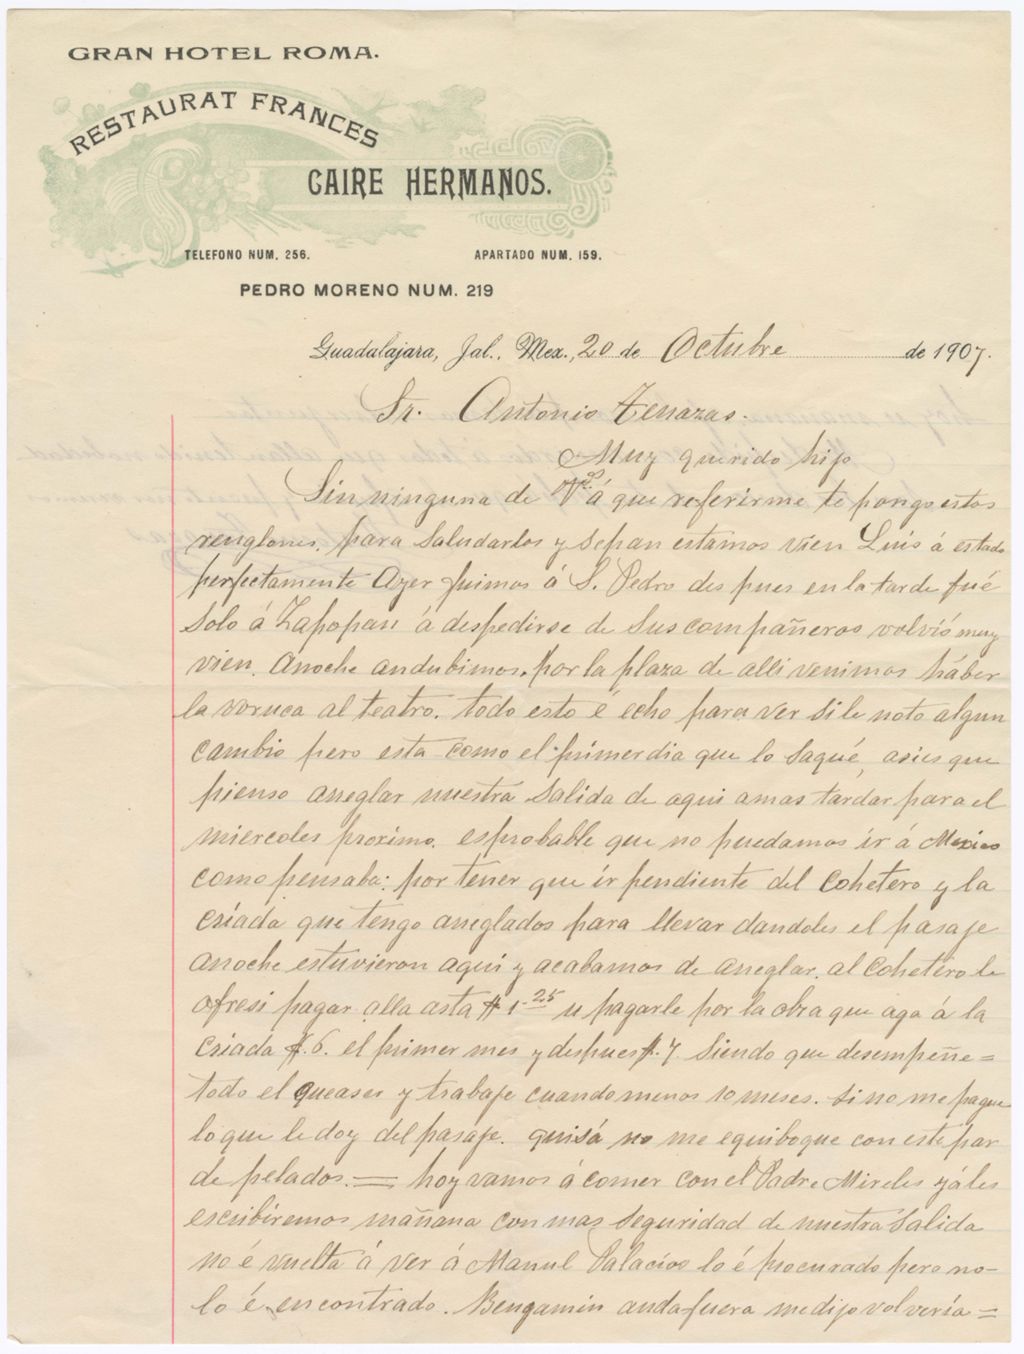 GRAN HOTEL ROMA.
RESTAURAT FRANCES
CAIRE HERMANOS.
TELEFONO NUM. 256. APARTADO NUM. 159.
PEDRO MORENO NUM. 219
Guadalajara, Jal., Mex., 20 de Octubre de 1907.
Sr. Antonio Terrazas.
Muy querido hijo
Sin ninguna de Vs. á que referirme te pongo estos
renglones, para Saludarlos y Sepan estamos vien Luis á estado
perfectamente Ayer fuimos á S. Pedro des pues en la tarde fué
Solo á Zapopan á despedirse de Sus compañeros volvió muy
vien. Anoche andubimos por la plaza de alli venimos háber
la voruca al teatro. todo esto é echo para ver Si le noto algun
cambio pero esta como el primer dia que lo Saqué, asies que
pienso arreglar nuestra Salida de aqui amas tardar para el
miercoles proximo. esprobable que no puedamos ir á Mexico
como pensaba: por tener que ir pendiente del Cohetero y la
Criada que tengo arreglados para llevar dandoles el pasaje
anoche estuvieron aqui y acabamos de arreglar. al Cohetero le
ofresi pagar alla asta $1.25 u pagarle por la obra que aga á la
Criada $.6. el primer mes y despues $.7. Siendo que desempeñe=
todo el queaser y trabaje cuando menos 10 meses. Si no me pague
lo que le doy del pasaje. quisá no me equiboque con este par
de pelados.= hoy vamos á comer con el Padre Mireles yáles
escribiremos mañana con mas Seguridad de nuestra Salida
no é vuelta á ver á Manul Palacios lo é procurado pero no-
lo é encontrado. Bengamin anda fuera me dijo volveria=